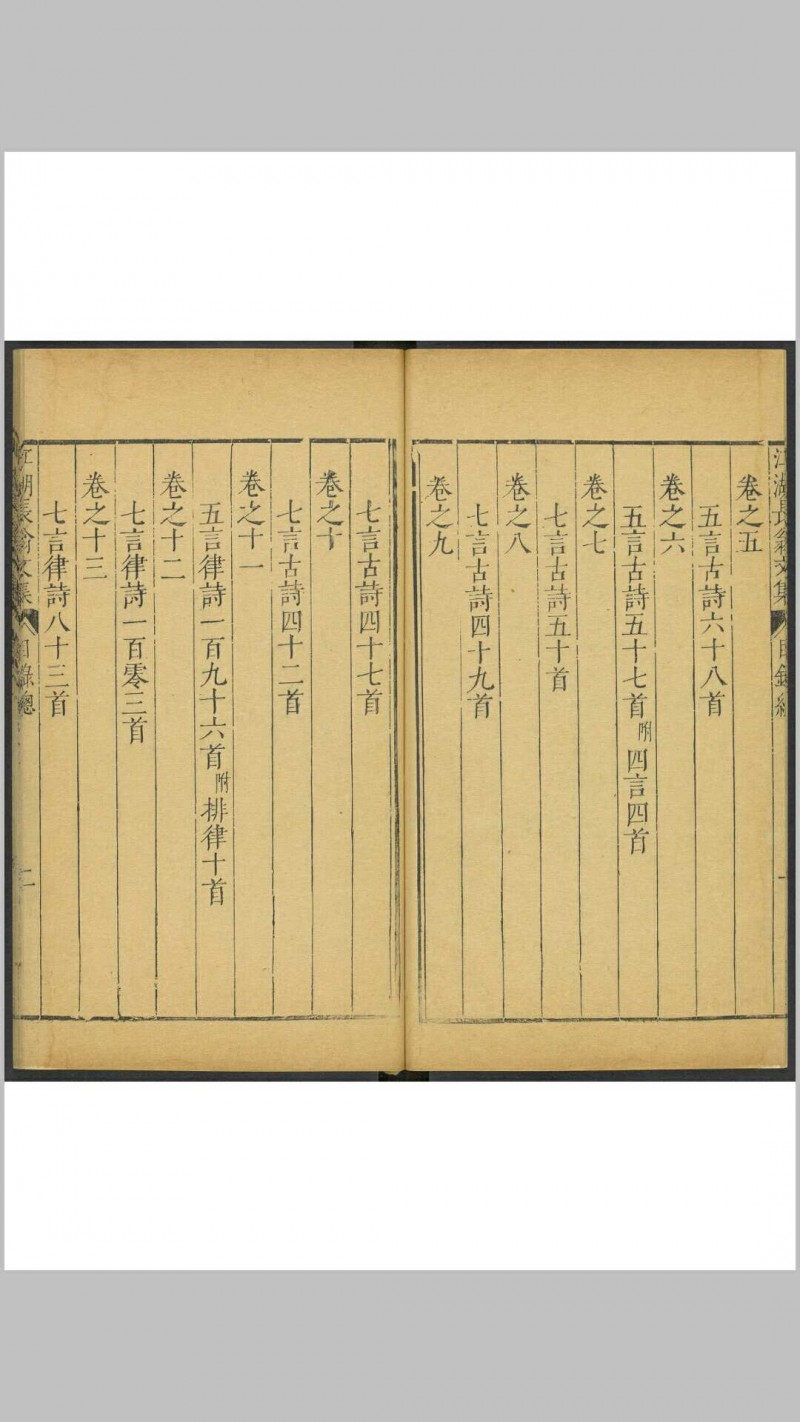 江湖長翁文集 目錄總 一
卷之五
五言古詩六十八首
卷之六
五言古詩五十七首附四言四首
卷之七
七言古詩五十首
卷之八
七言古詩四十九首
卷之九
七言古詩四十七首
卷之十
七言古詩四十二首
卷之十一
五言律詩一百九十六首附排律十首
卷之十二
七言律詩一百零三首
卷之十三
七言律詩八十三首
江湖長翁文集 目錄總 二